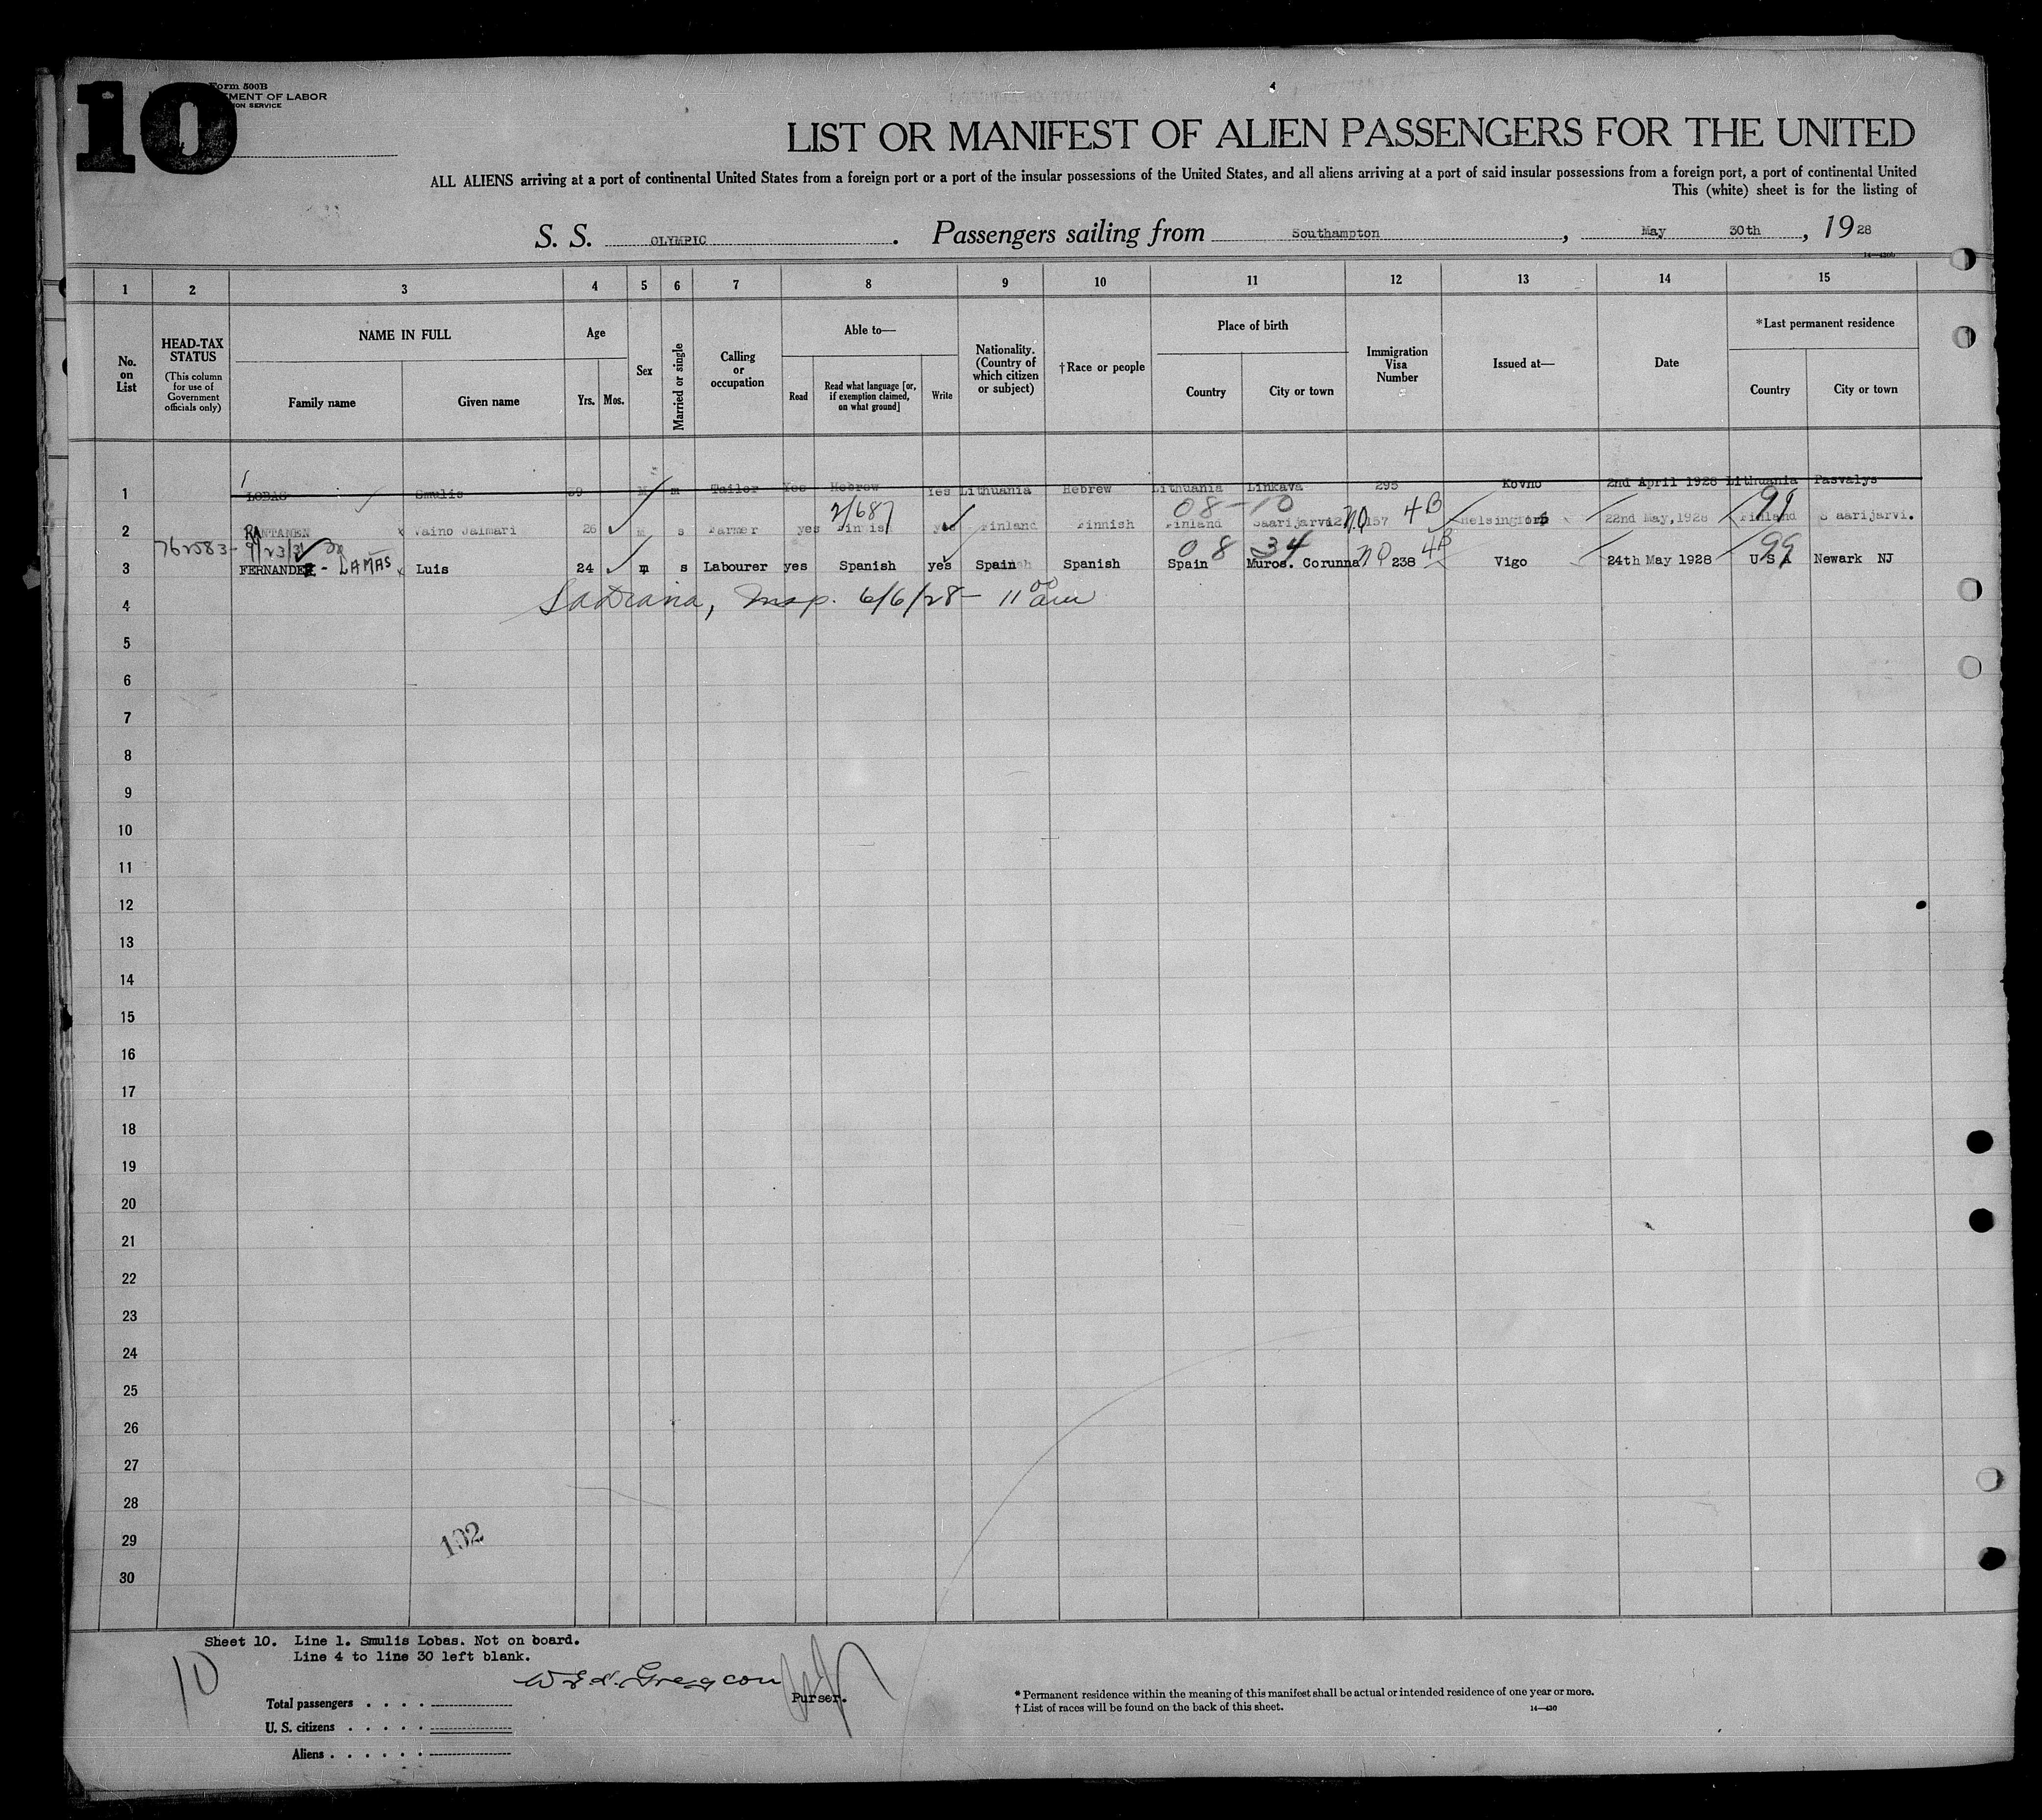 10
Form 500B
MENT OF LABOR
ION SERVICE
LIST OR MANIFEST OF ALIEN PASSENGERS FOR THE UNITED
ALL ALIENS arriving at a port of continental United States from a foreign port or a port of the insular possessions of the United States, and all aliens arriving at a port of said insular possessions from a foreign port, a port of continental United
This (white) sheet is for the listing of
S. S. OLYMPIC. Passengers sailing from Southampton, May 30th, 1928
14—430b
1 2 3 4 5 6 7 8 9 10 11 12 13 14 15
No. on List
HEAD-TAX STATUS (This column for use of Government officials only)
NAME IN FULL
Family name
Given name
Age
Yrs. Mos.
Sex
Married or single
Calling or occupation
Able to—
Read
Read what language [or, if exemption claimed, on what ground]
Write
Nationality. (Country of which citizen or subject)
†Race or people
Place of birth
Country
City or town
Immigration Visa Number
Issued at—
Date
*Last permanent residence
Country
City or town
1 LOBAS Smulis 39 M m Tailor Yes Hebrew Yes Lithuania Hebrew Lithuania Linkava 295 Kovno 2nd April 1928 Lithuania Pasvalys
2/687 08-10 4B 99
2 RANTANEN Vaino Jalmari 26 m s Farmer yes Finnis yes Finland Finnish Finland Saarijarvi NO 157 Helsingfors 22nd May,1928 Finland S aarijarvi.
762583- 9/23/31 08 34 4B 99
3 FERNANDEZ - LAMAS Luis 24 m s Labourer yes Spanish yes Spain Spanish Spain Muros. Corunna NO 238 Vigo 24th May 1928 U S A Newark NJ
4 Insp. 6/6/28 - 11 00 am
5
6
7
8
9
10
11
12
13
14
15
16
17
18
19
20
21
22
23
24
25
26
27
28
29
30
102
Sheet 10. Line 1. Smulis Lobas. Not on board.
Line 4 to line 30 left blank.
10
Purser.
Total passengers
U. S. citizens
Aliens
* Permanent residence within the meaning of this manifest shall be actual or intended residence of one year or more.
† List of races will be found on the back of this sheet.
14—430